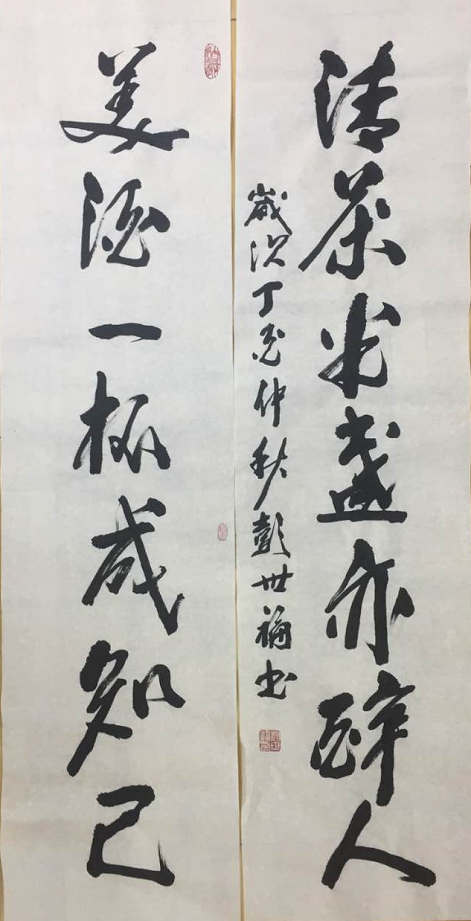 美酒一杯成知己
清茶半盏亦醉人
歲次丁酉仲秋彭世福书